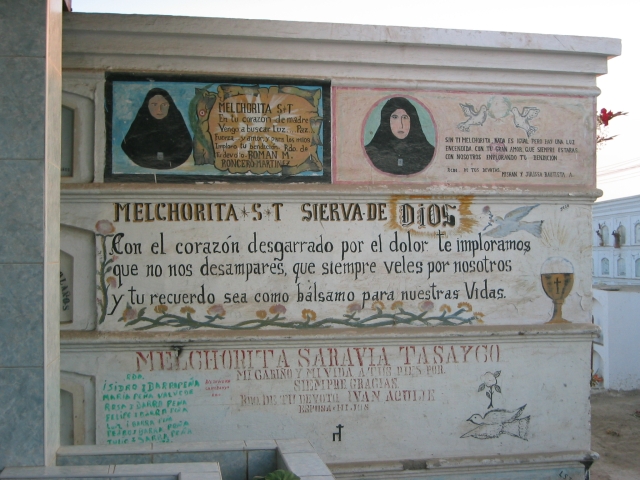 MELCHORITA S † T
En tu corazón de madre
Vengo a buscar Luz... Paz...
Fuerza y amor; para los míos
Imploro tu bendición. Rdo. de
tu devoto ROMAN M.
RONCEROS MARTINEZ
SIN TI MELCHORITA, NADA ES IGUAL PERO HAY UNA LUZ
ENCENDIDA CON TU GRAN AMOR, QUE SIEMPRE ESTARÁ
CON NOSOTROS IMPLORANDO TU BENDICIÓN
RDO. DE TUS DEVOTAS
MELCHORITA * S † T SIERVA DE DIOS
Con el corazón desgarrado por el dolor te imploramos,
que no nos desampares, que siempre veles por nosotros
y tu recuerdo sea como bálsamo para nuestras Vidas.
MELCHORITA SARAVIA TASAYCO
MI CARIÑO Y MI VIDA A TUS PIES POR
SIEMPRE GRACIAS
RDO. DE TU DEVOTO IVAN AGUIJE
E HIJOS
ISIDRO
MARIA PEÑA
ROSA PEÑA
FELIPE